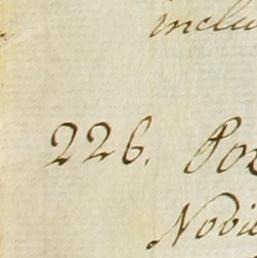 inclu
226. Po
Novi